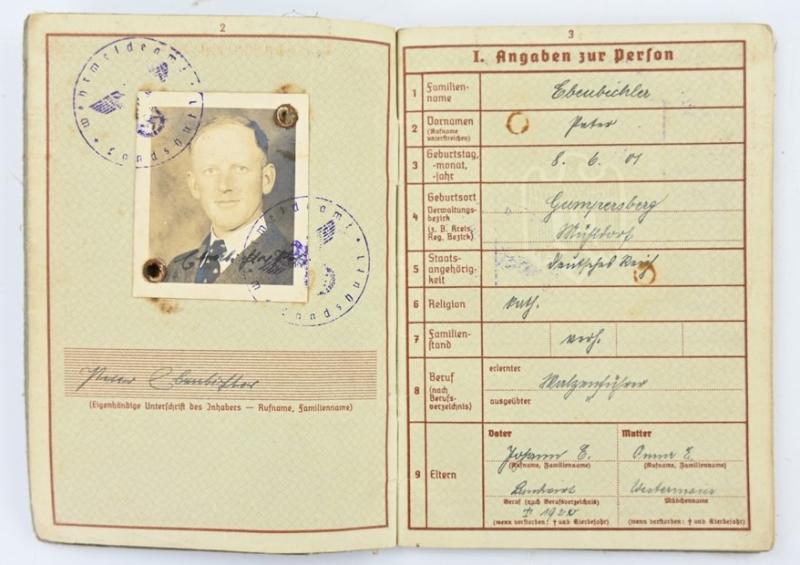 2
Wehrmeldeamt
Wehrmeldeamt
Peter Ebenbichler
(Eigenhändige Unterschrift des Inhabers — Rufname, Familienname)
3
I. Angaben zur Person
1 Familien-
name
Ebenbichler
2 Vornamen
(Rufname
unterstreichen)
Peter
3 Geburtstag,
-monat,
-jahr
8. 6. 01
4 Geburtsort
Verwaltungs-
bezirk
(z. B. Kreis,
Reg. Bezirk)
Gumpersberg
Mühldorf
5 Staats-
angehörig-
keit
Deutsches Reich
6 Religion
kath.
7 Familien-
stand
verh.
8 Beruf
(nach
Berufs-
verzeichnis)
erlernter
Walzenführer
ausgeübter
9 Eltern
Vater
Johann E.
(Rufname, Familienname)
Beruf (nach Berufsverzeichnis)
† 1920
(wenn verstorben: † und Sterbejahr)
Mutter
Anna E.
(Rufname, Familienname)
Westermann
Mädchenname
(wenn verstorben: † und Sterbejahr)